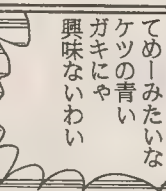 てめーみたいな
ケツの青い
ガキにゃ
興味ないわい